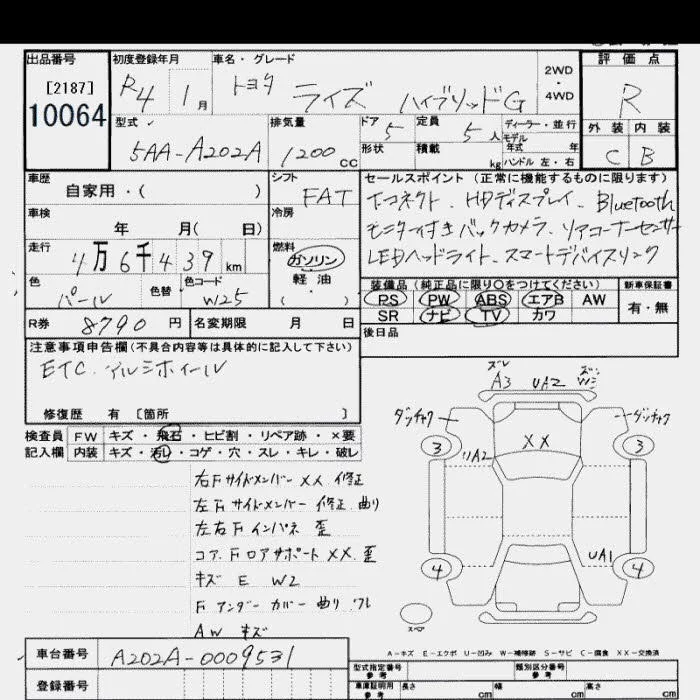 出品番号 初度登録年月 車名・グレード 2WD 評価点
[2187] R4 1月 トヨタ ライズ ハイブリッドG 4WD R
10064 型式 排気量 ドア 定員 ディーラー・並行 外装 内装
5AA-A202A 1200cc 5 5人 モデル年式 年 C B
形状 積載 kg ハンドル 左・右
車歴 シフト セールスポイント (正常に機能するものに限ります)
自家用・( ) FAT Tコネクト、HDディスプレイ、Bluetooth
車検 冷房 モニター付きバックカメラ、リアコーナーセンサー
年 月( 日) LEDヘッドライト、スマートデバイスリンク
走行 燃料
4万6千439km ガソリン
軽油
( )
色 色替 色コード 装備品 (純正品に限り〇をつけてください) 新車保証書
パール W25 PS PW ABS エアB AW 有・無
SR ナビ TV カワ
R券 8790円 名変期限 月 日 後日品
注意事項申告欄(不具合内容等は具体的に記入して下さい)
ETC. アルミホイール
修復歴 有 [箇所 ]
検査員 FW キズ・飛石・ヒビ割・リペア跡・×要
記入欄 内装 キズ・汚レ・コゲ・穴・スレ・キレ・破レ
ズレ
A3 UA2 W2
ダンチャク ダンチャク
3 UA2 XX 3
UA1
4 4
スペア
右Fサイドメンバー XX 修正
左Fサイドメンバー 修正 曲り
左右Fインパネ 歪
コア、Fロアサポート XX、歪
キズ E W2
Fアンダーカバー 曲り ワレ
AW キズ
A-キズ E-エクボ U-凹み W-補修跡 S-サビ C-腐食 XX-交換済
車台番号 A202A-0009531
型式指定番号 参考 類別区分番号 参考
登録番号 車庫証明用 参考 長さ cm 幅 cm 高さ cm